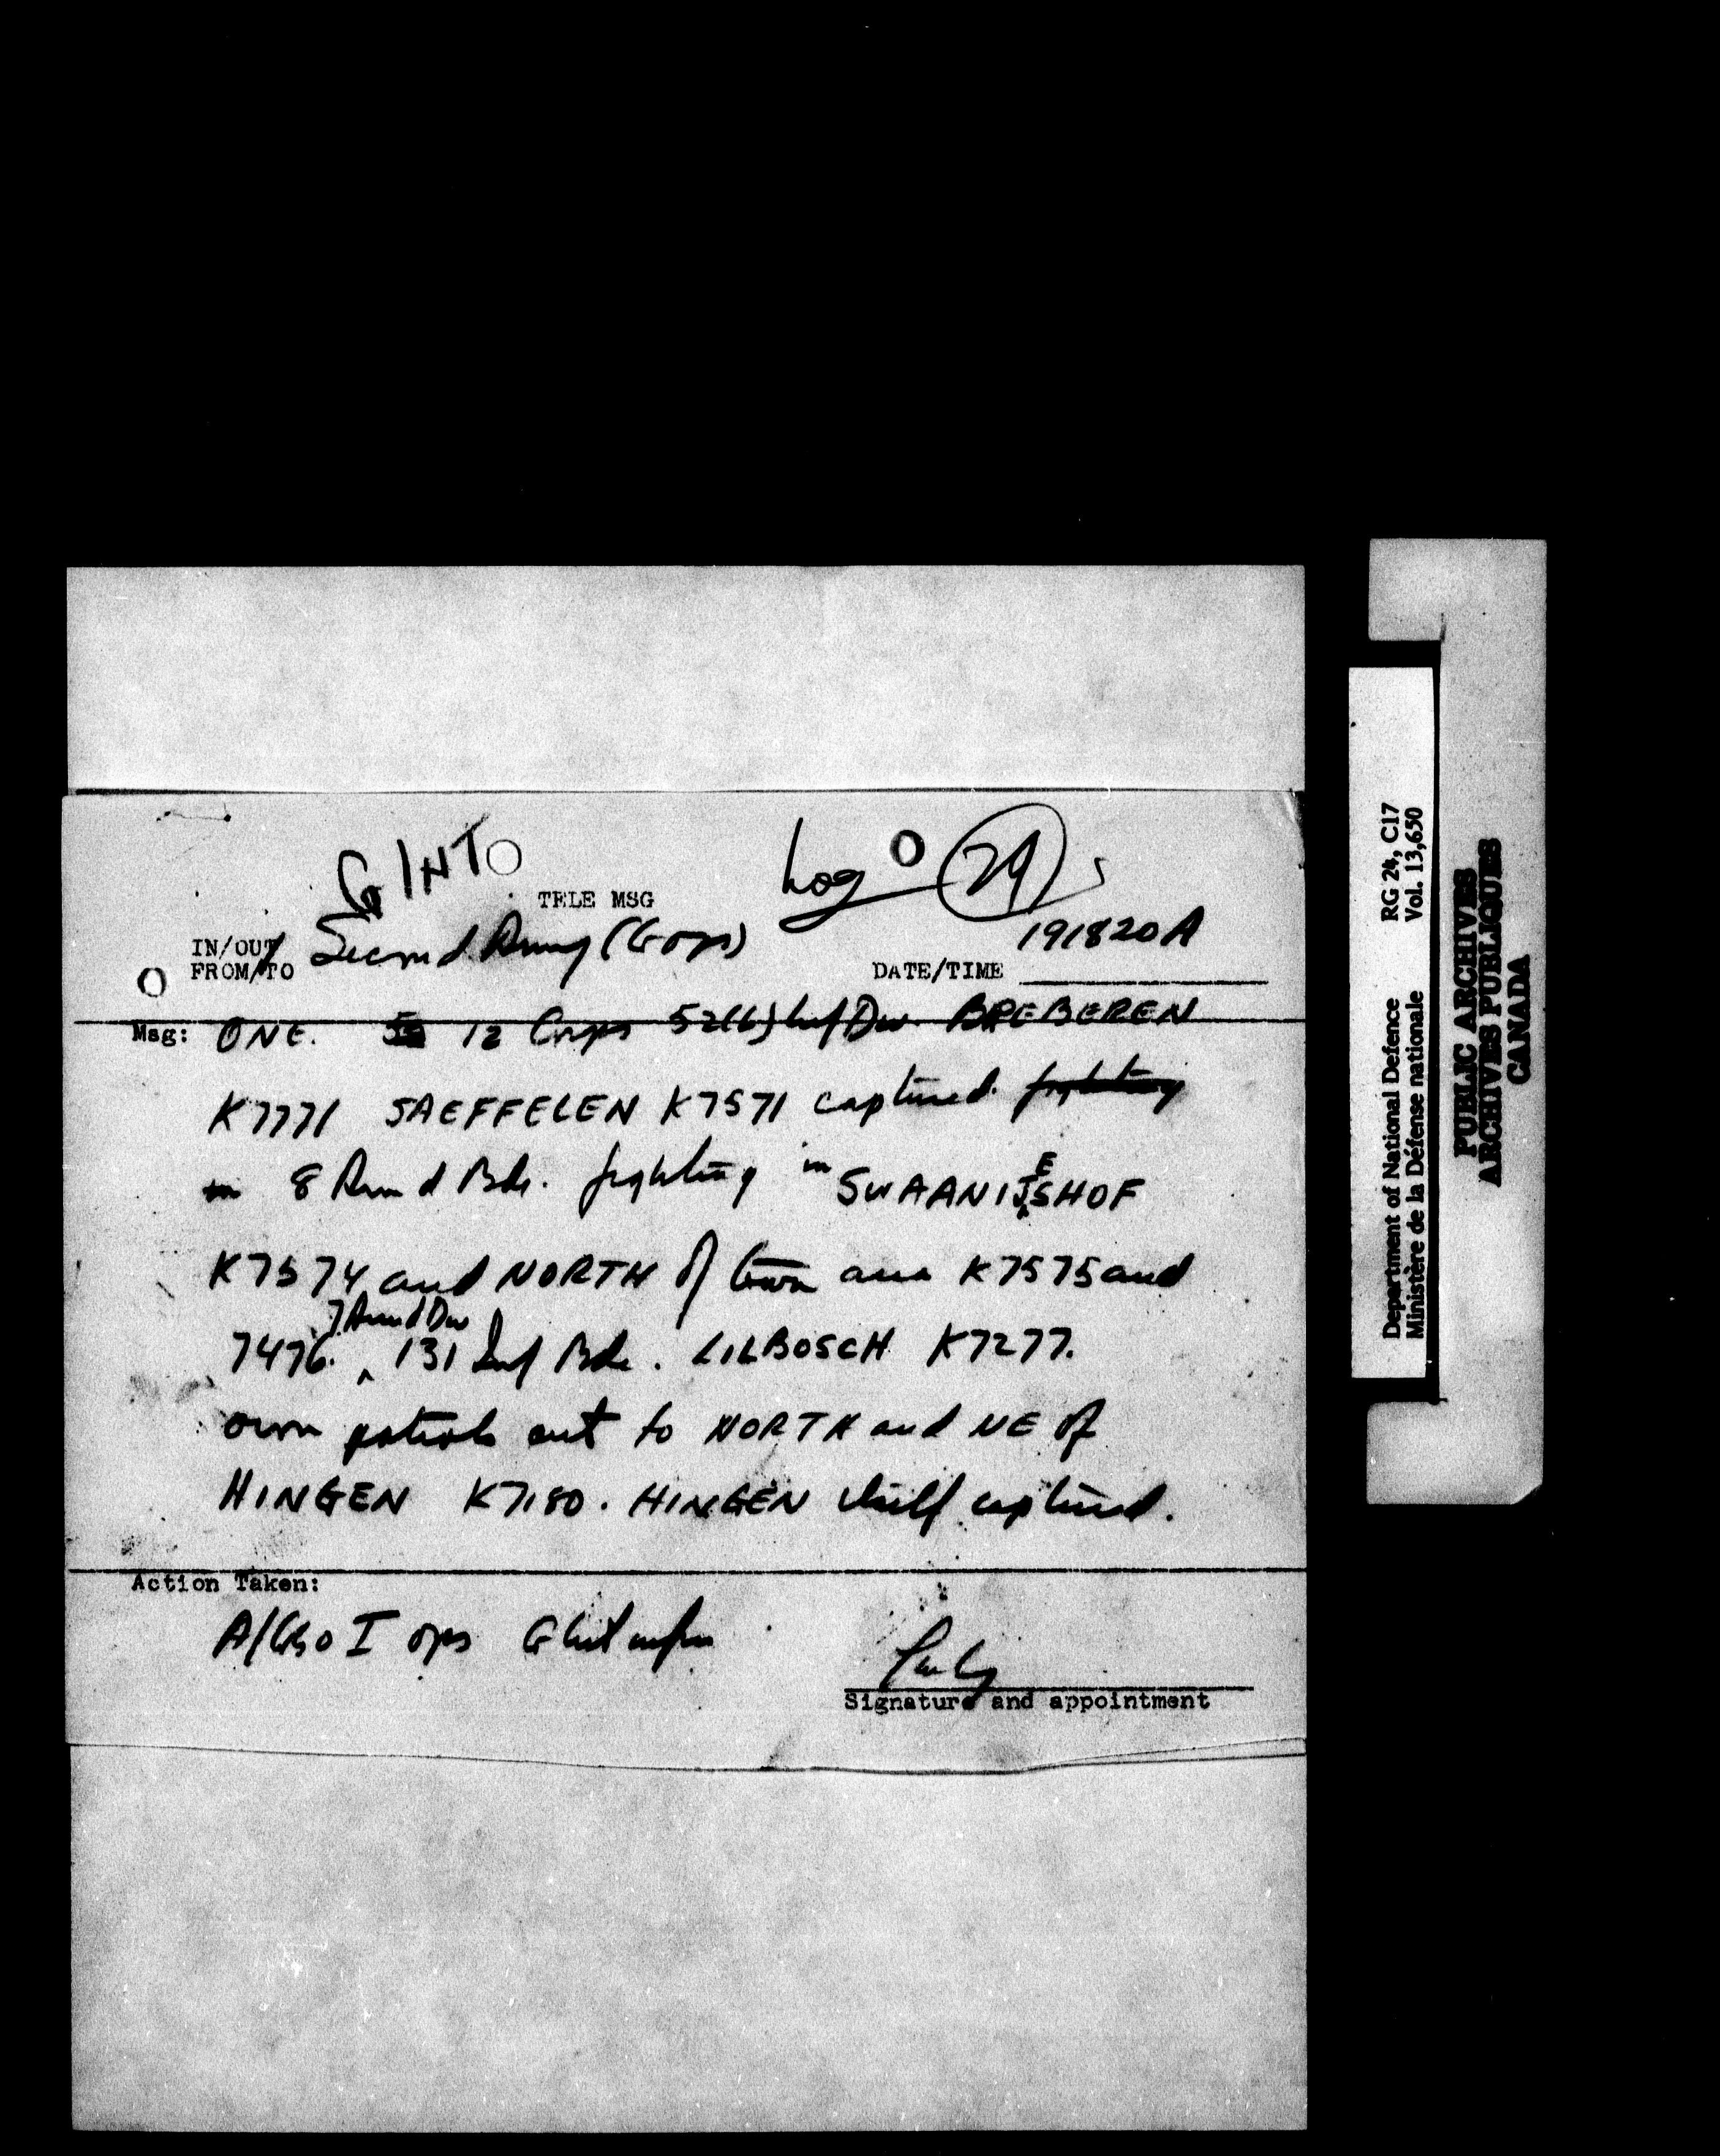 G INT
Log 29
TELE MSG
IN/OUT
FROM/TO Second Army (G Ops)
DATE/TIME 191820A
Msg: ONE. 12 Corps 52(L) Inf Div. BREBEREN
K7771 SAEFFELEN K7571 captured. fighting
in 8 Armd Bde. fighting in SWAANIJESHOF
K7574 and NORTH of town area K7575 and
7476. 7 Armd Div 131 Inf Bde. LILBOSCH K7277.
own patrols out to NORTH and NE of
HINGEN K7180. HINGEN itself captured.
Action Taken:
A/GSO I ops G Int
Signature and appointment
Department of National Defence RG 24, C17
Ministère de la Défense nationale Vol. 13,650
PUBLIC ARCHIVES
ARCHIVES PUBLIQUES
CANADA